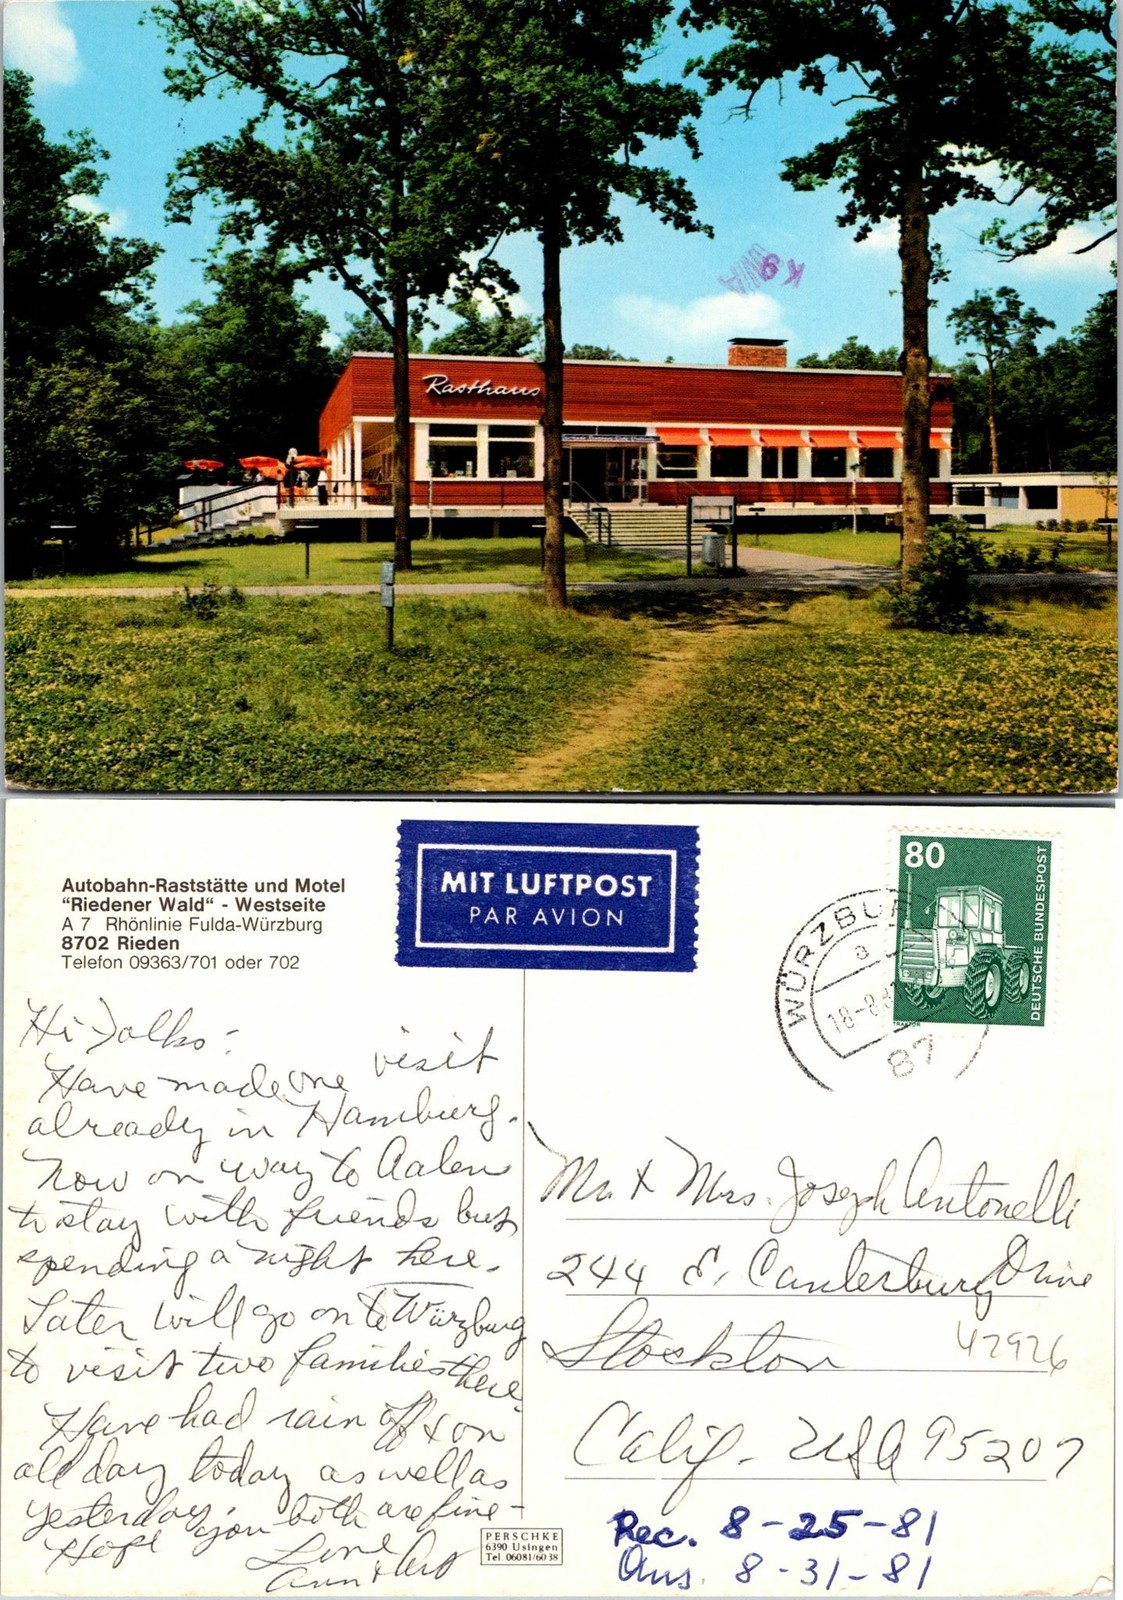 Rasthaus
K9
Autobahn-Raststätte und Motel
"Riedener Wald" - Westseite
A 7 Rhönlinie Fulda-Würzburg
8702 Rieden
Telefon 09363/701 oder 702
MIT LUFTPOST
PAR AVION
80
DEUTSCHE BUNDESPOST
TRAKTOR
WÜRZBURG
a
18-8.81
87
Hi Folks:
Have made one visit
already in Hamburg.
Now on way to Aalen
to stay with friends but
spending a night here.
Later will go on to Würzburg
to visit two families there.
Have had rain off & on
all day today as well as
yesterday.
Hope you both are fine -
Love
Ann & Art
Mr. & Mrs. Joseph Antonelli
244 E. Canterbury Drive
Stockton
42926
Calif. USA 95207
PERSCHKE
6390 Usingen
Tel. 06081/6038
Rec. 8-25-81
Ans. 8-31-81